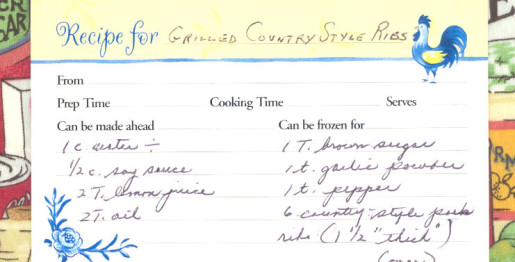 Recipe for GRILLED COUNTRY STYLE RIBS
From
Prep Time Cooking Time Serves
Can be made ahead
1 c. water ÷
1/2 c. soy sauce
2 T. lemon juice
2 T. oil
Can be frozen for
1 T. brown sugar
1 t. garlic powder
1 t. pepper
6 country-style pork
ribs (1 1/2" thick")
(over)